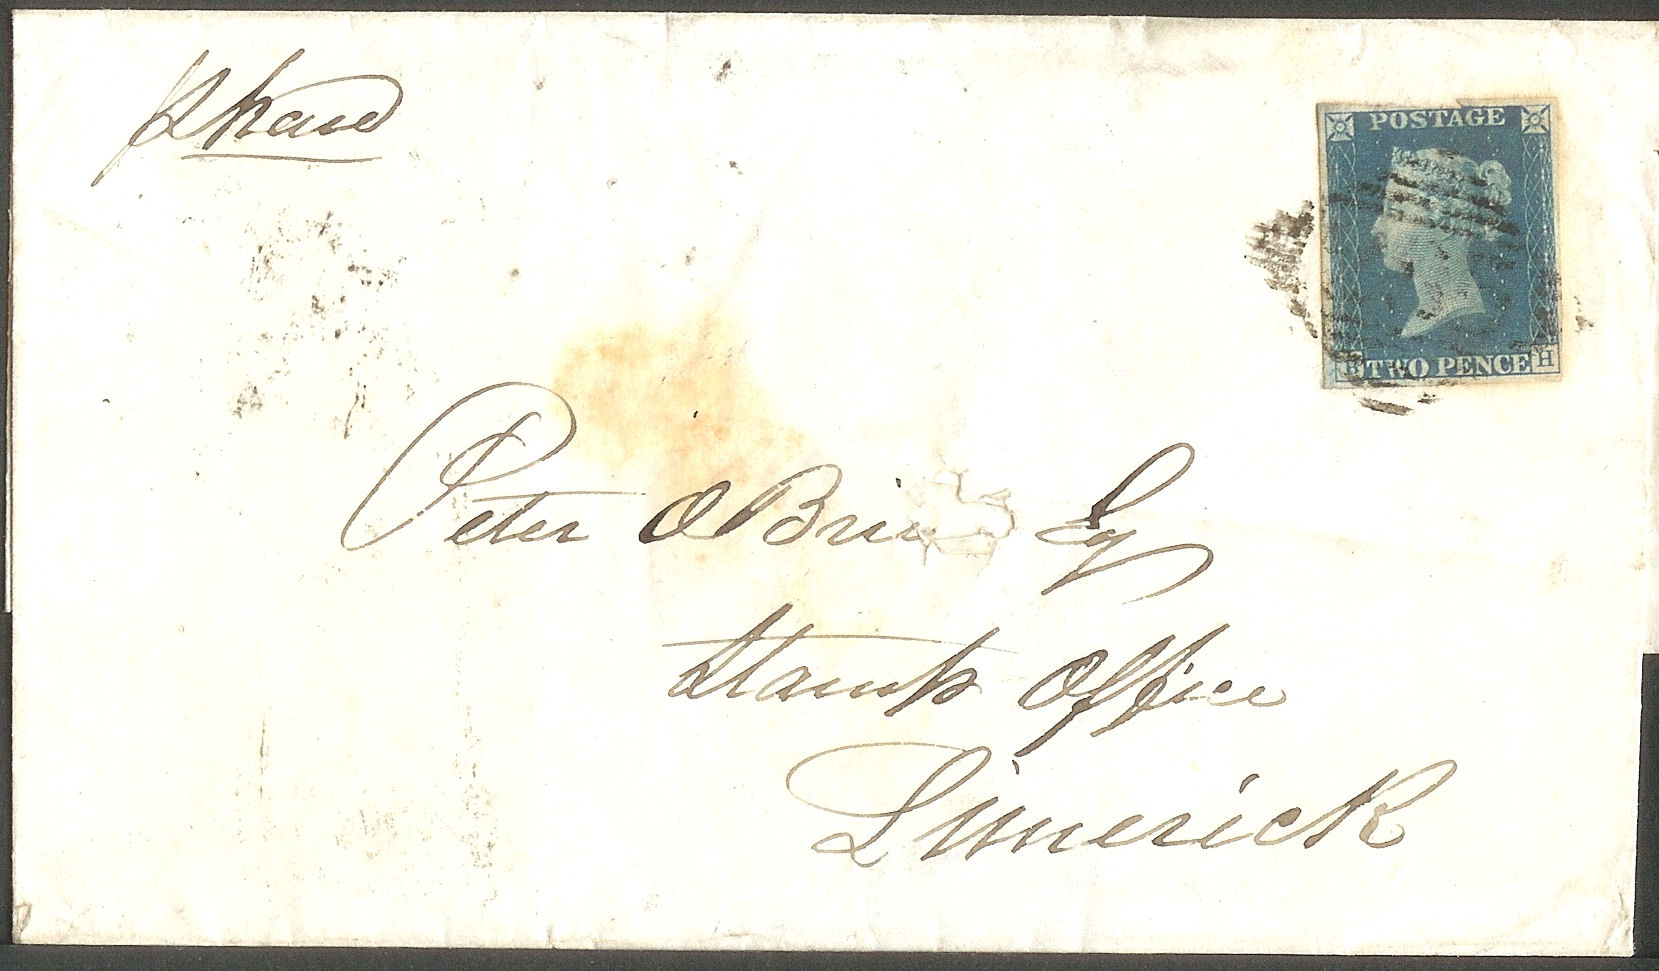 POSTAGE
B TWO PENCE H
Peter O Brien Esq
Stamp Office
Limerick